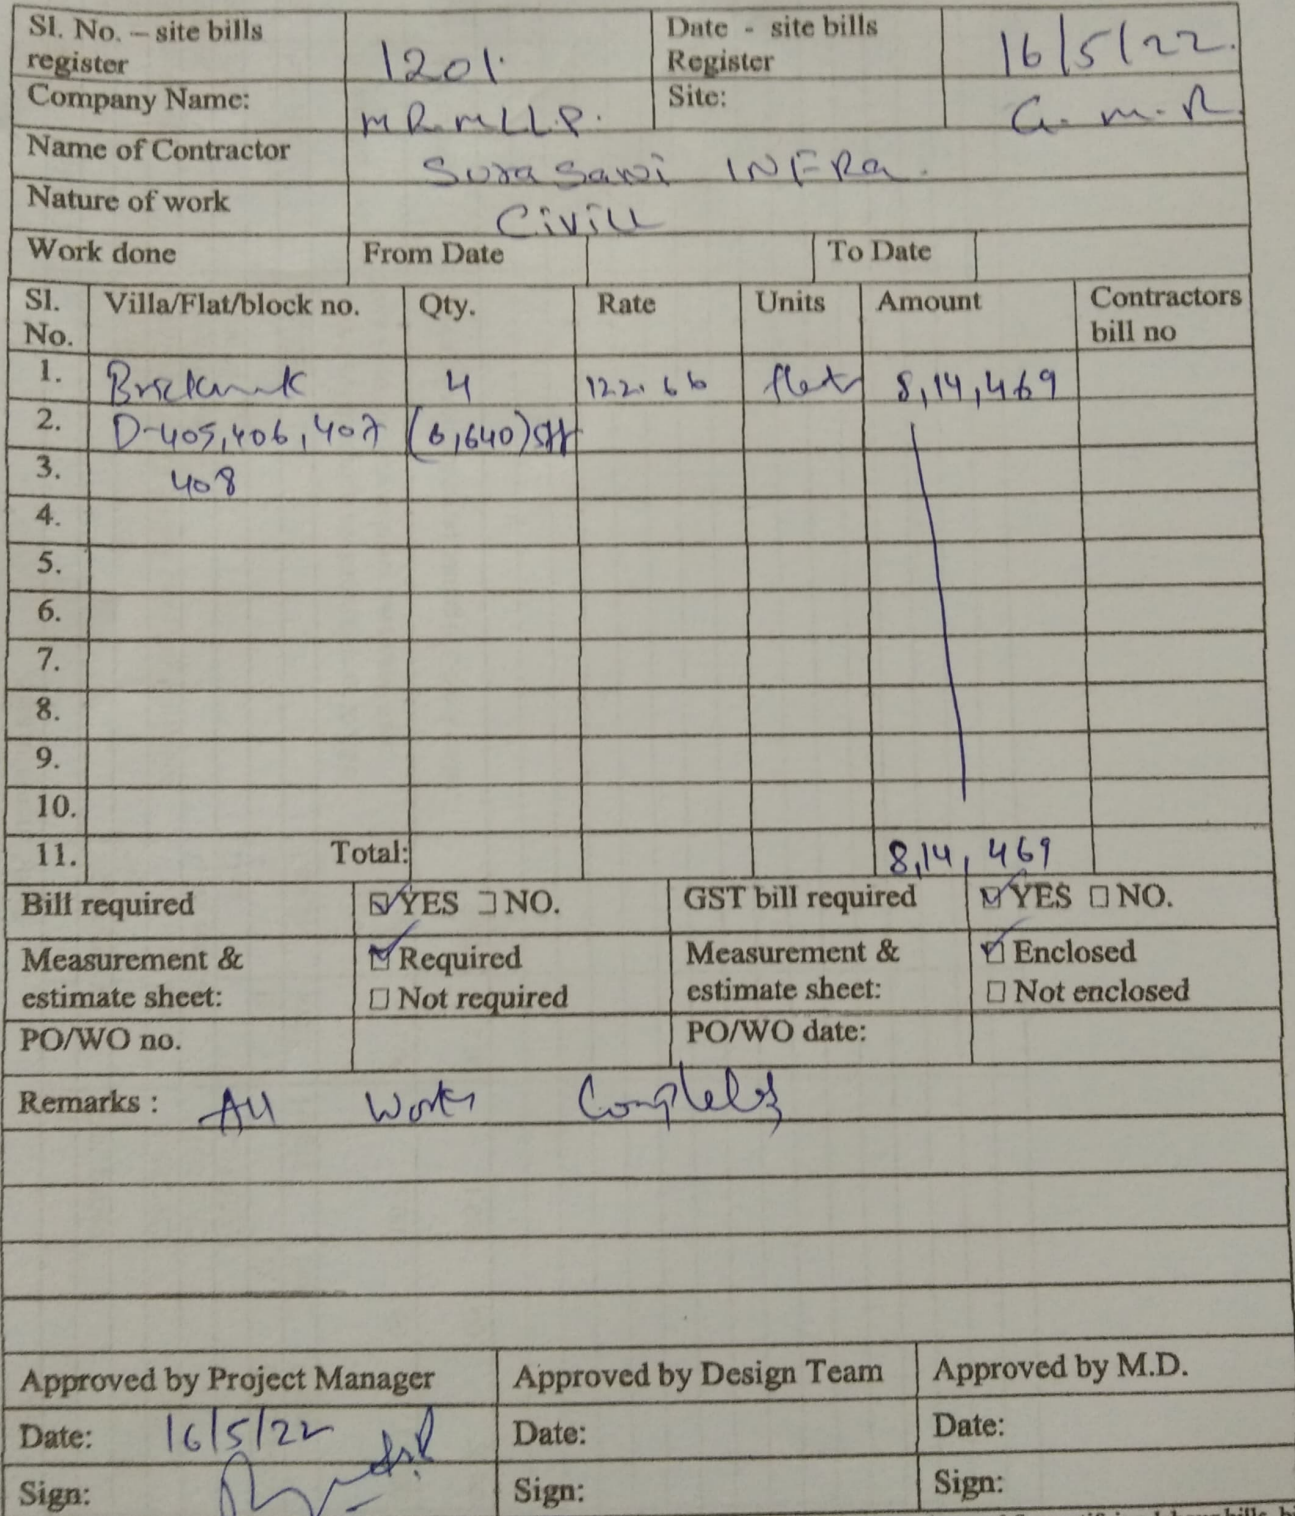 Sl. No. – site bills register 1201. Date - site bills Register 16/5/22.
Company Name: M R M L L P. Site: G. M. R.
Name of Contractor Surasani INFRA.
Nature of work Civill
Work done From Date To Date
Sl. No. Villa/Flat/block no. Qty. Rate Units Amount Contractors bill no
1. Brickwork 4 122.66 flats 8,14,469
2. D-405,406,407 (6,640)sft
3. 408
4.
5.
6.
7.
8.
9.
10.
11. Total: 8,14,469
Bill required ☑YES ☐NO. GST bill required ☑YES ☐NO.
Measurement & estimate sheet: ☑Required ☐Not required Measurement & estimate sheet: ☑Enclosed ☐Not enclosed
PO/WO no. PO/WO date:
Remarks : All Works Completed
Approved by Project Manager Approved by Design Team Approved by M.D.
Date: 16/5/22 Date: Date:
Sign: Sign: Sign: